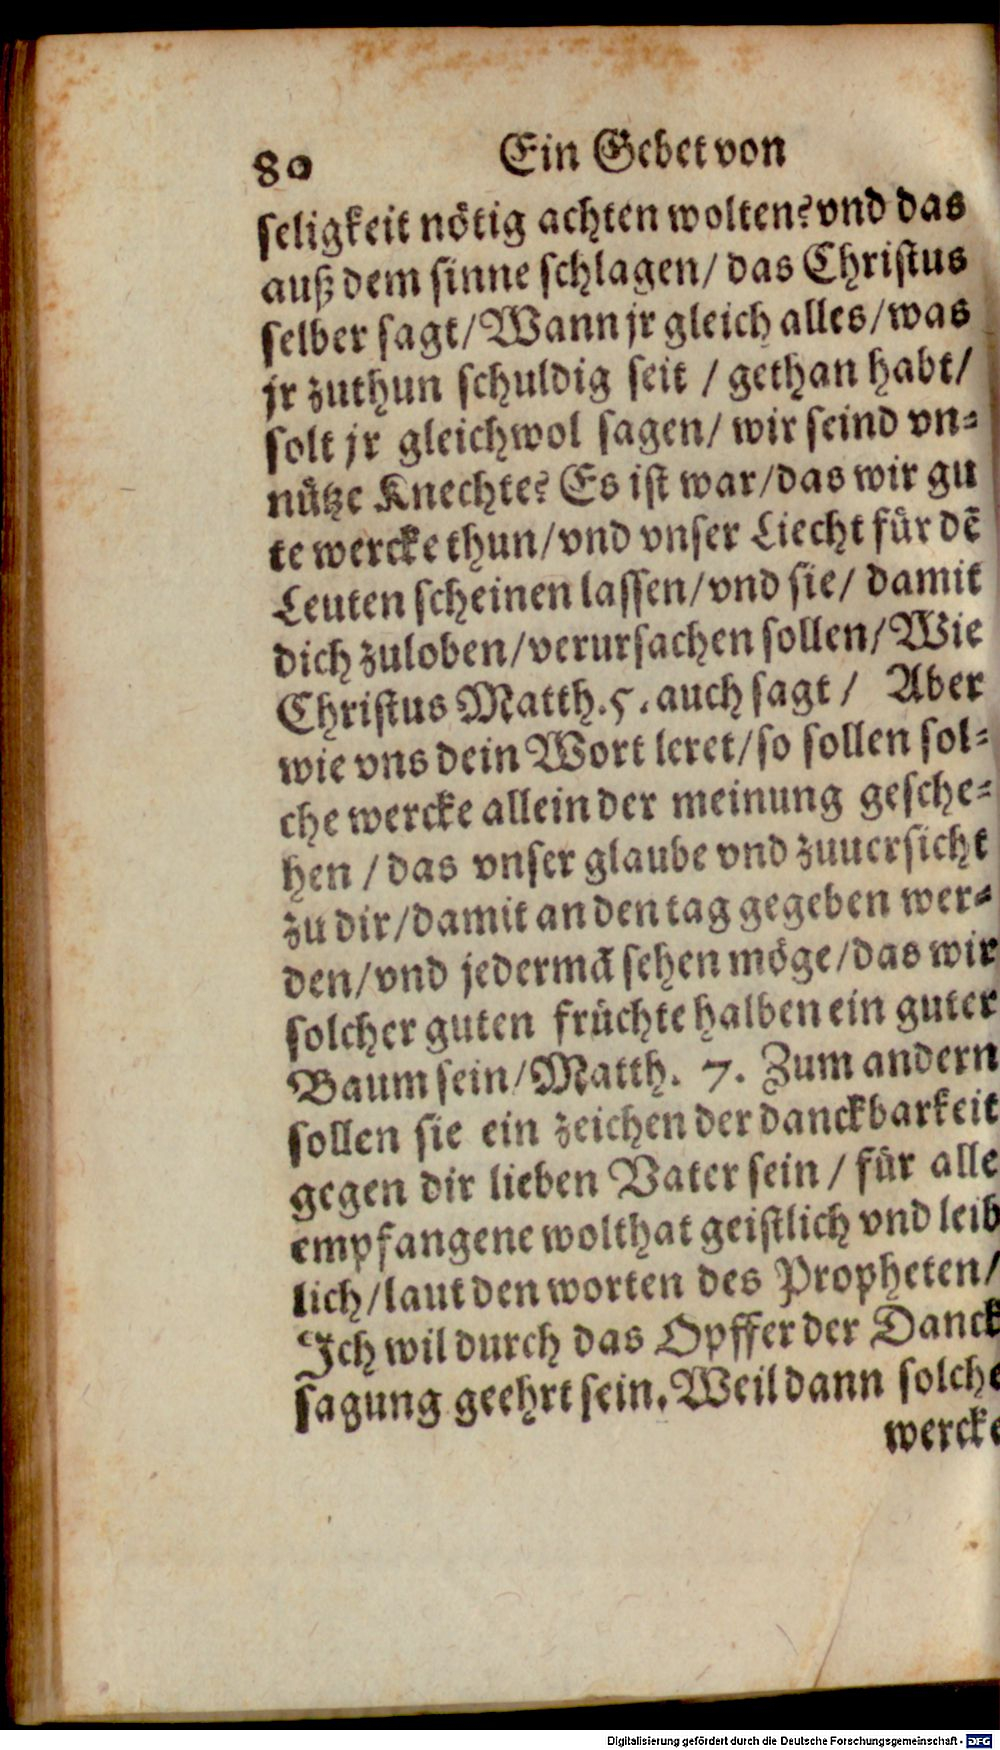 80 Ein Gebet von
seligkeit nötig achten wolten? vnd das
auß dem sinne schlagen/ das Christus
selber sagt/ Wann jr gleich alles/ was
jr zuthun schuldig seit / gethan habt/
solt jr gleichwol sagen/ wir seind vn-
nütze Knechte? Es ist war/ das wir gu
te wercke thun/ vnd vnser Liecht für dē
Leuten scheinen lassen/ vnd sie/ damit
dich zuloben/ verursachen sollen/ Wie
Christus Matth. 5. auch sagt / Aber
wie vns dein Wort leret/ so sollen sol-
che wercke allein der meinung gesche-
hen / das vnser glaube vnd zuuersicht
zu dir/ damit an den tag gegeben wer-
den/ vnd jedermā sehen möge/ das wir
solcher guten früchte halben ein guter
Baum sein/ Matth. 7. Zum andern
sollen sie ein zeichen der danckbarkeit
gegen dir lieben Vater sein / für alle
empfangene wolthat geistlich vnd leib
lich/ laut den worten des Propheten/
Ich wil durch das Opffer der Danck
sagung geehrt sein. Weil dann solche
wercke
Digitalisierung gefördert durch die Deutsche Forschungsgemeinschaft - DFG